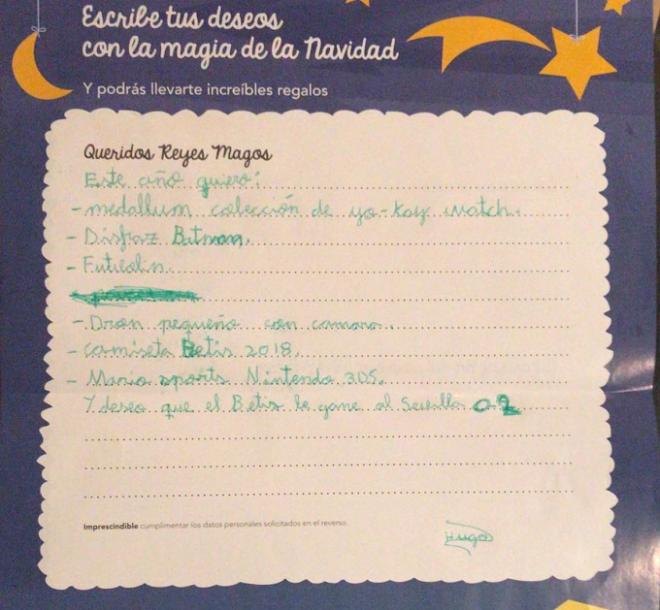 Escribe tus deseos
con la magia de la Navidad
Y podrás llevarte increíbles regalos
Queridos Reyes Magos
Este año quiero:
- medallum colección de yo-kay watch.
- Disfraz Batman.
- Futbolin.
- Dron pequeño con camara.
- camiseta Betis 2018.
- Mario sports Nintendo 3DS.
Y deseo que el Betis le gane al Sevilla 0-2
Imprescindible cumplimentar los datos personales solicitados en el reverso.
Hugo